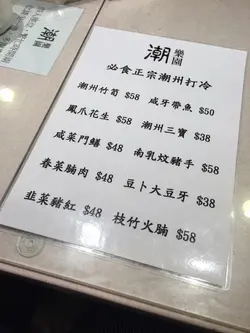 潮
樂園
必食正宗潮州打冷
潮州竹筍 $58 咸牙帶魚 $50
鳳爪花生 $58 潮州三寶 $38
咸菜門鱔 $48 南乳炆豬手 $58
春菜腩肉 $48 豆卜大豆牙 $38
韭菜豬紅 $48 枝竹火腩 $58
潮
樂園